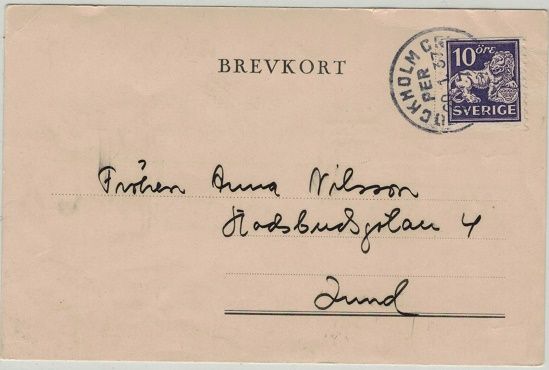 BREVKORT
STOCKHOLM CEN
PER
1 37
10 ÖRE
SVERIGE
Fröken Anna Nilsson
Stadsbudsgatan 4
Lund